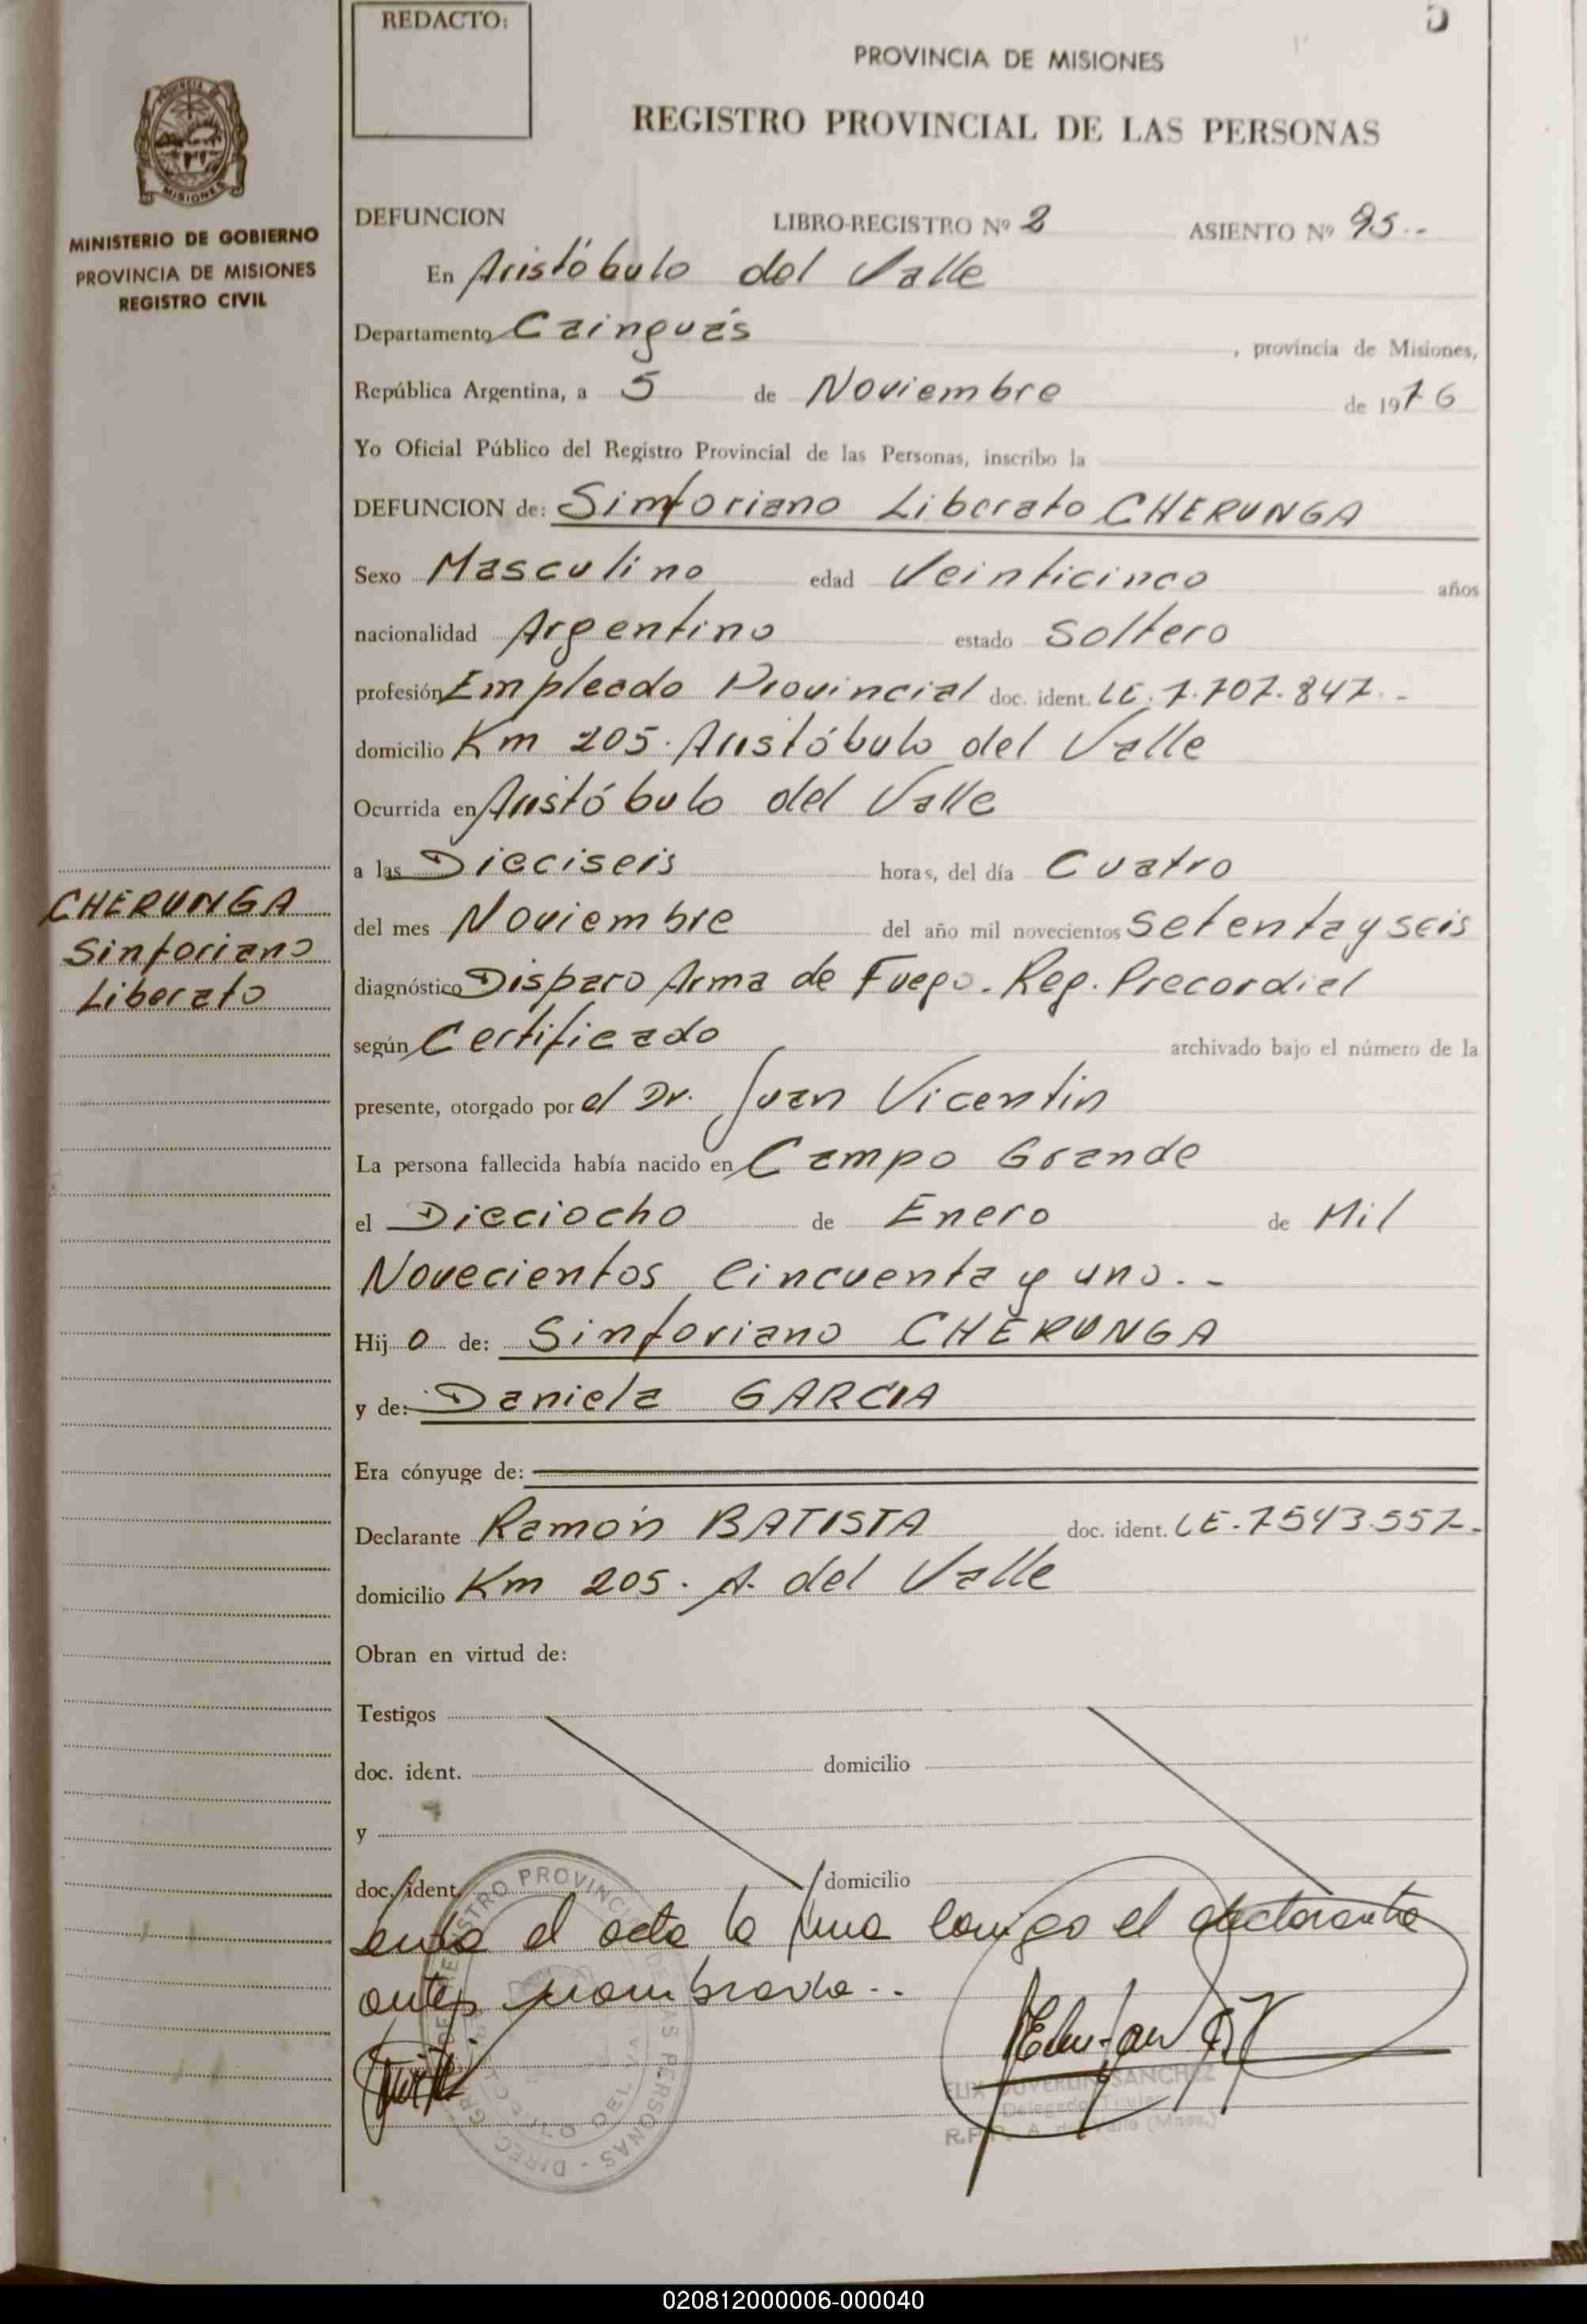 REDACTO:
PROVINCIA DE MISIONES
REGISTRO PROVINCIAL DE LAS PERSONAS
MISIONES
MINISTERIO DE GOBIERNO
PROVINCIA DE MISIONES
REGISTRO CIVIL
DEFUNCION LIBRO-REGISTRO Nº 2 ASIENTO Nº 95.-
En Aristóbulo del Valle
Departamento Cainguás, provincia de Misiones,
República Argentina, a 5 de Noviembre de 1976
Yo Oficial Público del Registro Provincial de las Personas, inscribo la
DEFUNCION de: Sinforiano Liberato CHERUNGA
Sexo Masculino edad Veinticinco años
nacionalidad Argentino estado Soltero
profesión Empleado Provincial doc. ident. LE. 7.707.847.-
domicilio Km 205. Aristóbulo del Valle
Ocurrida en Aristóbulo del Valle
a las Dieciseis horas, del día Cuatro
del mes Noviembre del año mil novecientos Setenta y seis
diagnóstico Disparo Arma de Fuego. Reg. Precordial
según Certificado archivado bajo el número de la
presente, otorgado por el Dr. Juan Vicentin
La persona fallecida había nacido en Campo Grande
el Dieciocho de Enero de Mil
Novecientos Cincuenta y uno.-
Hijo de: Sinforiano CHERUNGA
y de: Daniela GARCIA
Era cónyuge de:
Declarante Ramón BATISTA doc. ident. LE-7543.557-
domicilio Km 205. A. del Valle
Obran en virtud de:
Testigos
doc. ident. domicilio
y
doc. ident. domicilio
el acta la firma conmigo el declarante
antes nombrado.-
CHERUNGA
Sinforiano
Liberato
SANCHEZ
Delegado Titular
020812000006-000040